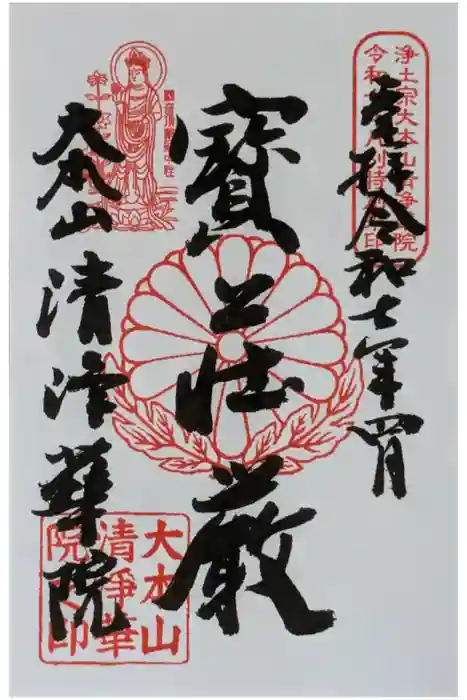 浄土宗大本山清浄華院
奉拝 令和七年四月
寶荘厳
大本山 清浄華院
大本山
清淨華
院之印